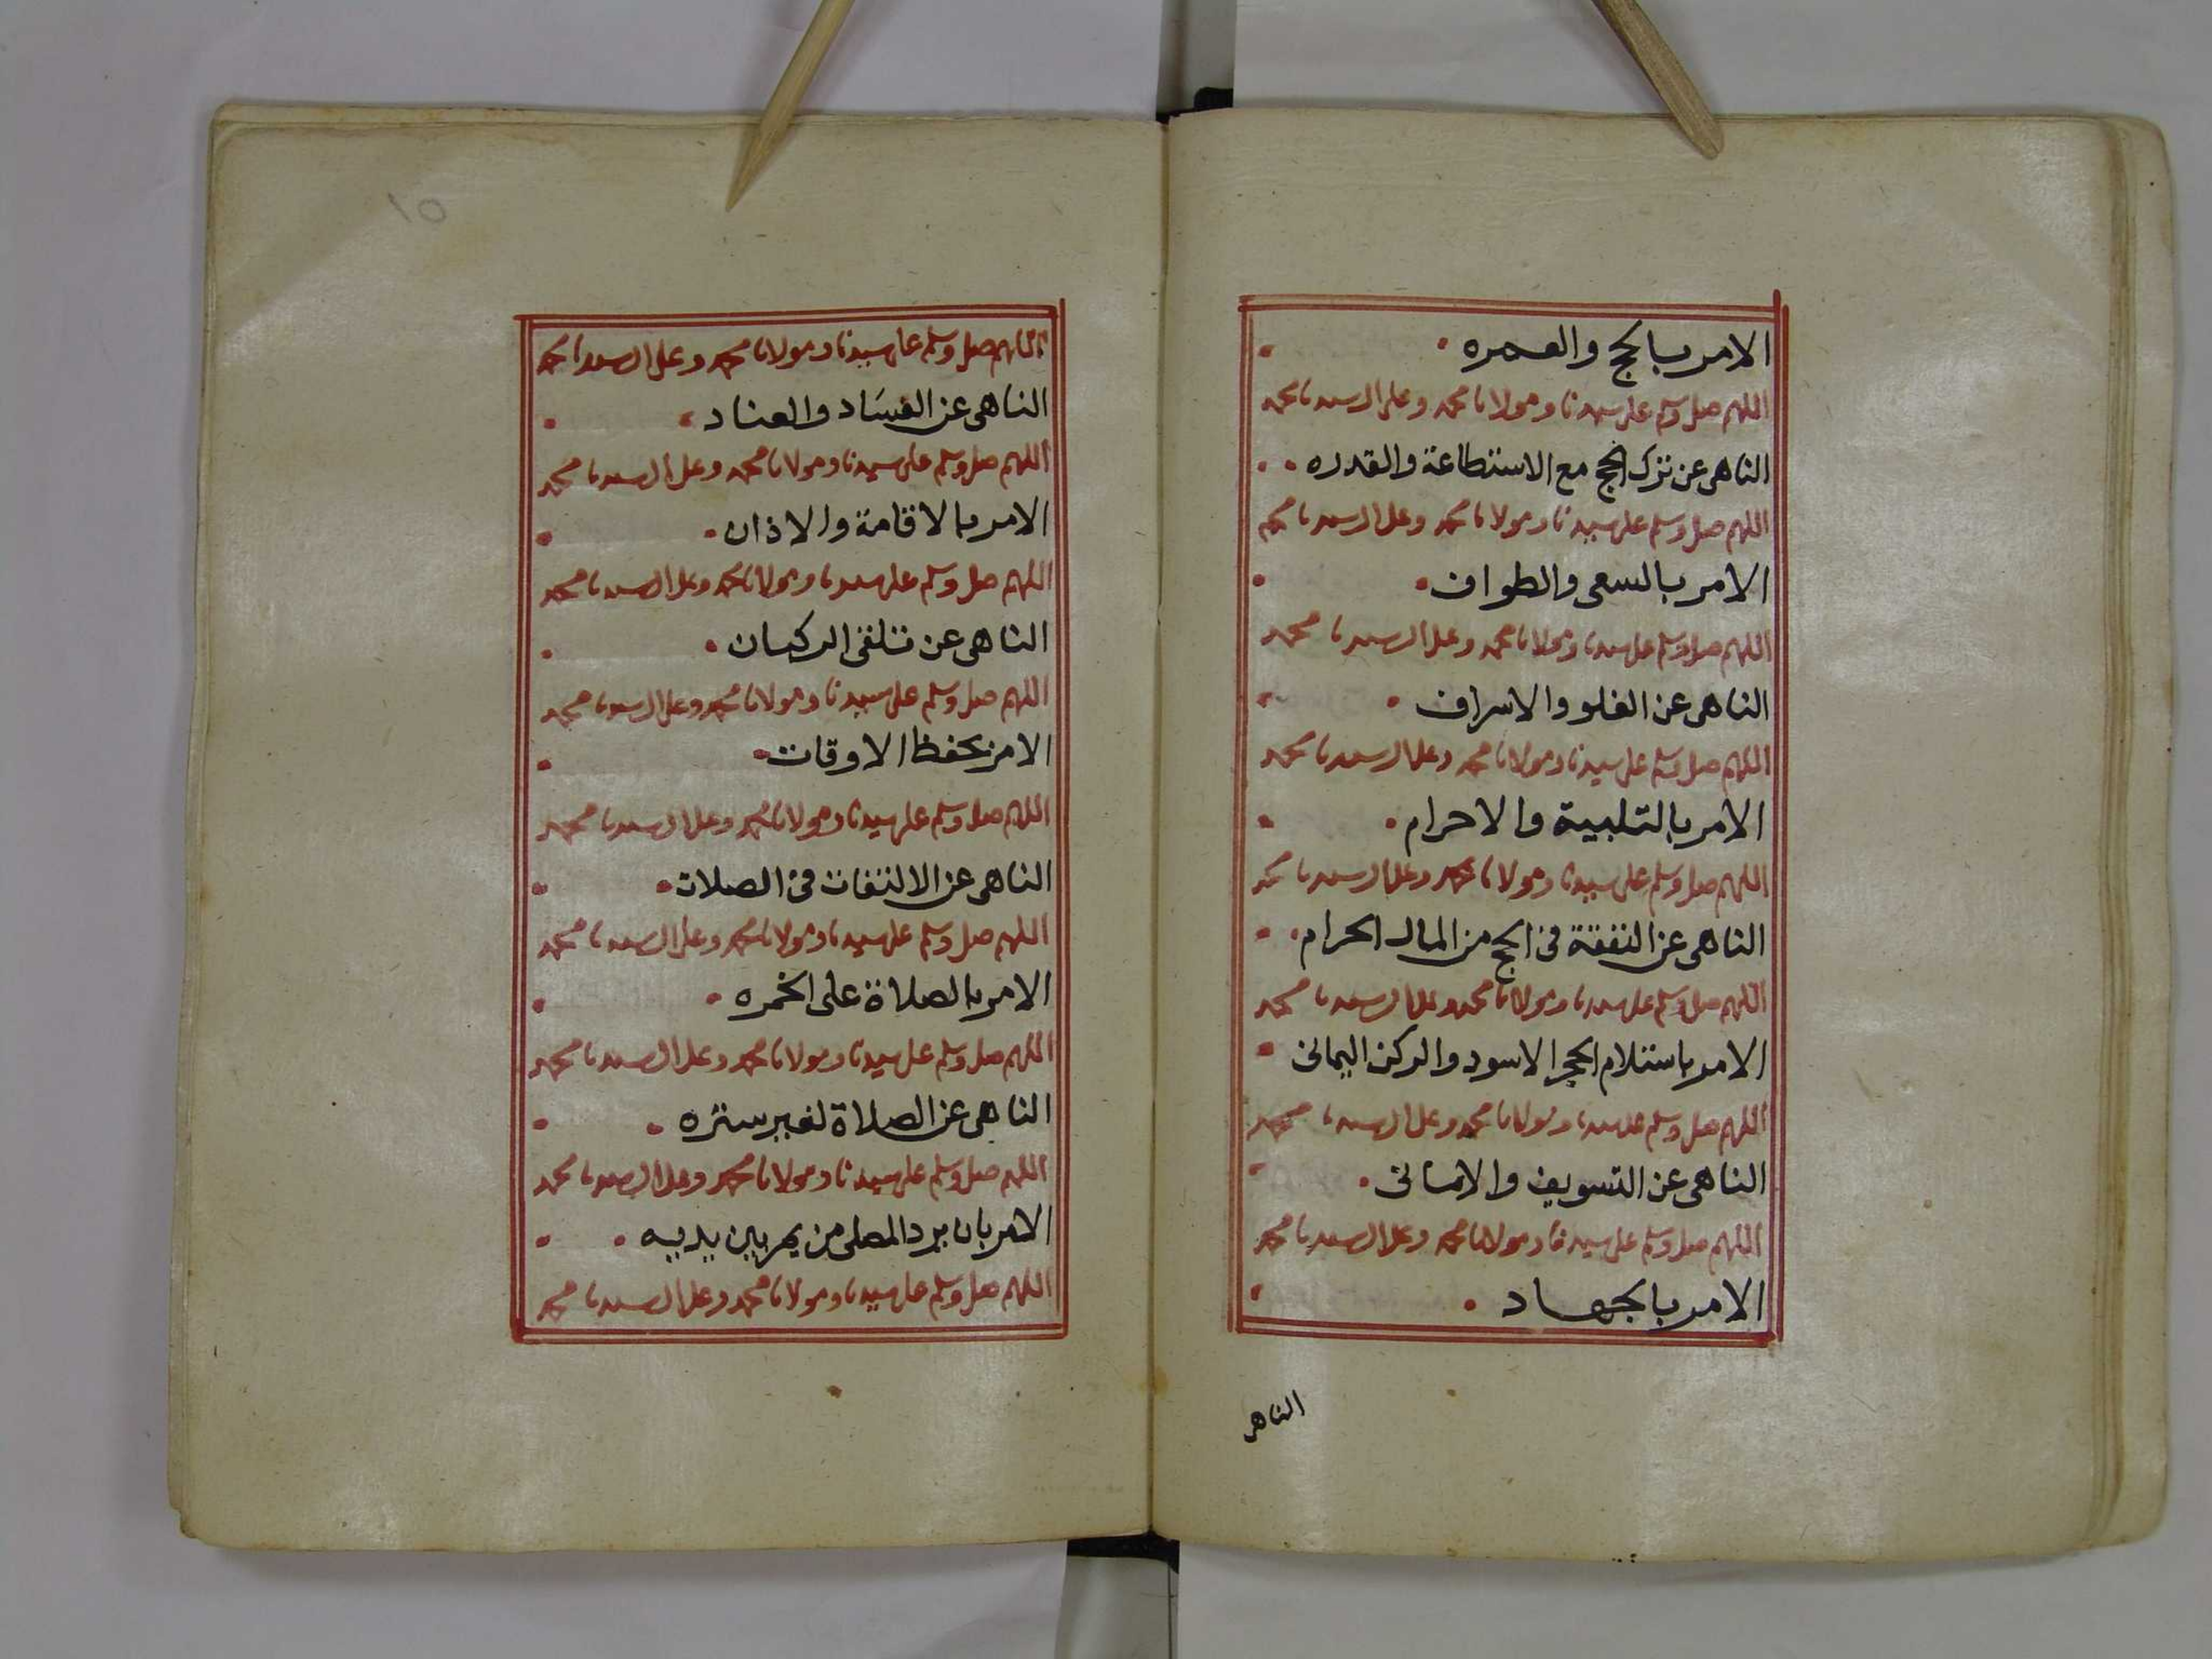 الامر بالحج والعمره
اللهم صل وسلم على سيدنا ومولانا محمد وعلى ال سيدنا محمد
الناهى عن ترك الحج مع الاستطاعة والقدره
اللهم صل وسلم على سيدنا ومولانا محمد وعلى ال سيدنا محمد
الامر بالسعى والطواف
اللهم صل وسلم على سيدنا ومولانا محمد وعلى ال سيدنا محمد
الناهى عن الغلو والاسراف
اللهم صل وسلم على سيدنا ومولانا محمد وعلى ال سيدنا محمد
الامر بالتلبية والاحرام
اللهم صل وسلم على سيدنا ومولانا محمد وعلى ال سيدنا محمد
الناهى عن النفقة فى الحج من المال الحرام
اللهم صل وسلم على سيدنا ومولانا محمد وعلى ال سيدنا محمد
الامر باستلام الحجر الاسود والركن اليمانى
اللهم صل وسلم على سيدنا ومولانا محمد وعلى ال سيدنا محمد
الناهى عن التسويف والامانى
اللهم صل وسلم على سيدنا ومولانا محمد وعلى ال سيدنا محمد
الامر بالجهاد
الناهى
١٥
اللهم صل وسلم على سيدنا ومولانا محمد وعلى ال سيدنا محمد
الناهى عن الفسَاد والعناد
اللهم صل وسلم على سيدنا ومولانا محمد وعلى ال سيدنا محمد
الامر بالاقامة والاذان
اللهم صل وسلم على سيدنا ومولانا محمد وعلى ال سيدنا محمد
الناهى عن تلقى الركبان
اللهم صل وسلم على سيدنا ومولانا محمد وعلى ال سيدنا محمد
الامر بحفظ الاوقات
اللهم صل وسلم على سيدنا ومولانا محمد وعلى ال سيدنا محمد
الناهى عن الالتفات فى الصلات
اللهم صل وسلم على سيدنا ومولانا محمد وعلى ال سيدنا محمد
الامر بالصلاة على الخمره
اللهم صل وسلم على سيدنا ومولانا محمد وعلى ال سيدنا محمد
الناهى عن الصلاة لغير ستره
اللهم صل وسلم على سيدنا ومولانا محمد وعلى ال سيدنا محمد
الامر بان يرد المصلى من يمر بين يديه
اللهم صل وسلم على سيدنا ومولانا محمد وعلى ال سيدنا محمد